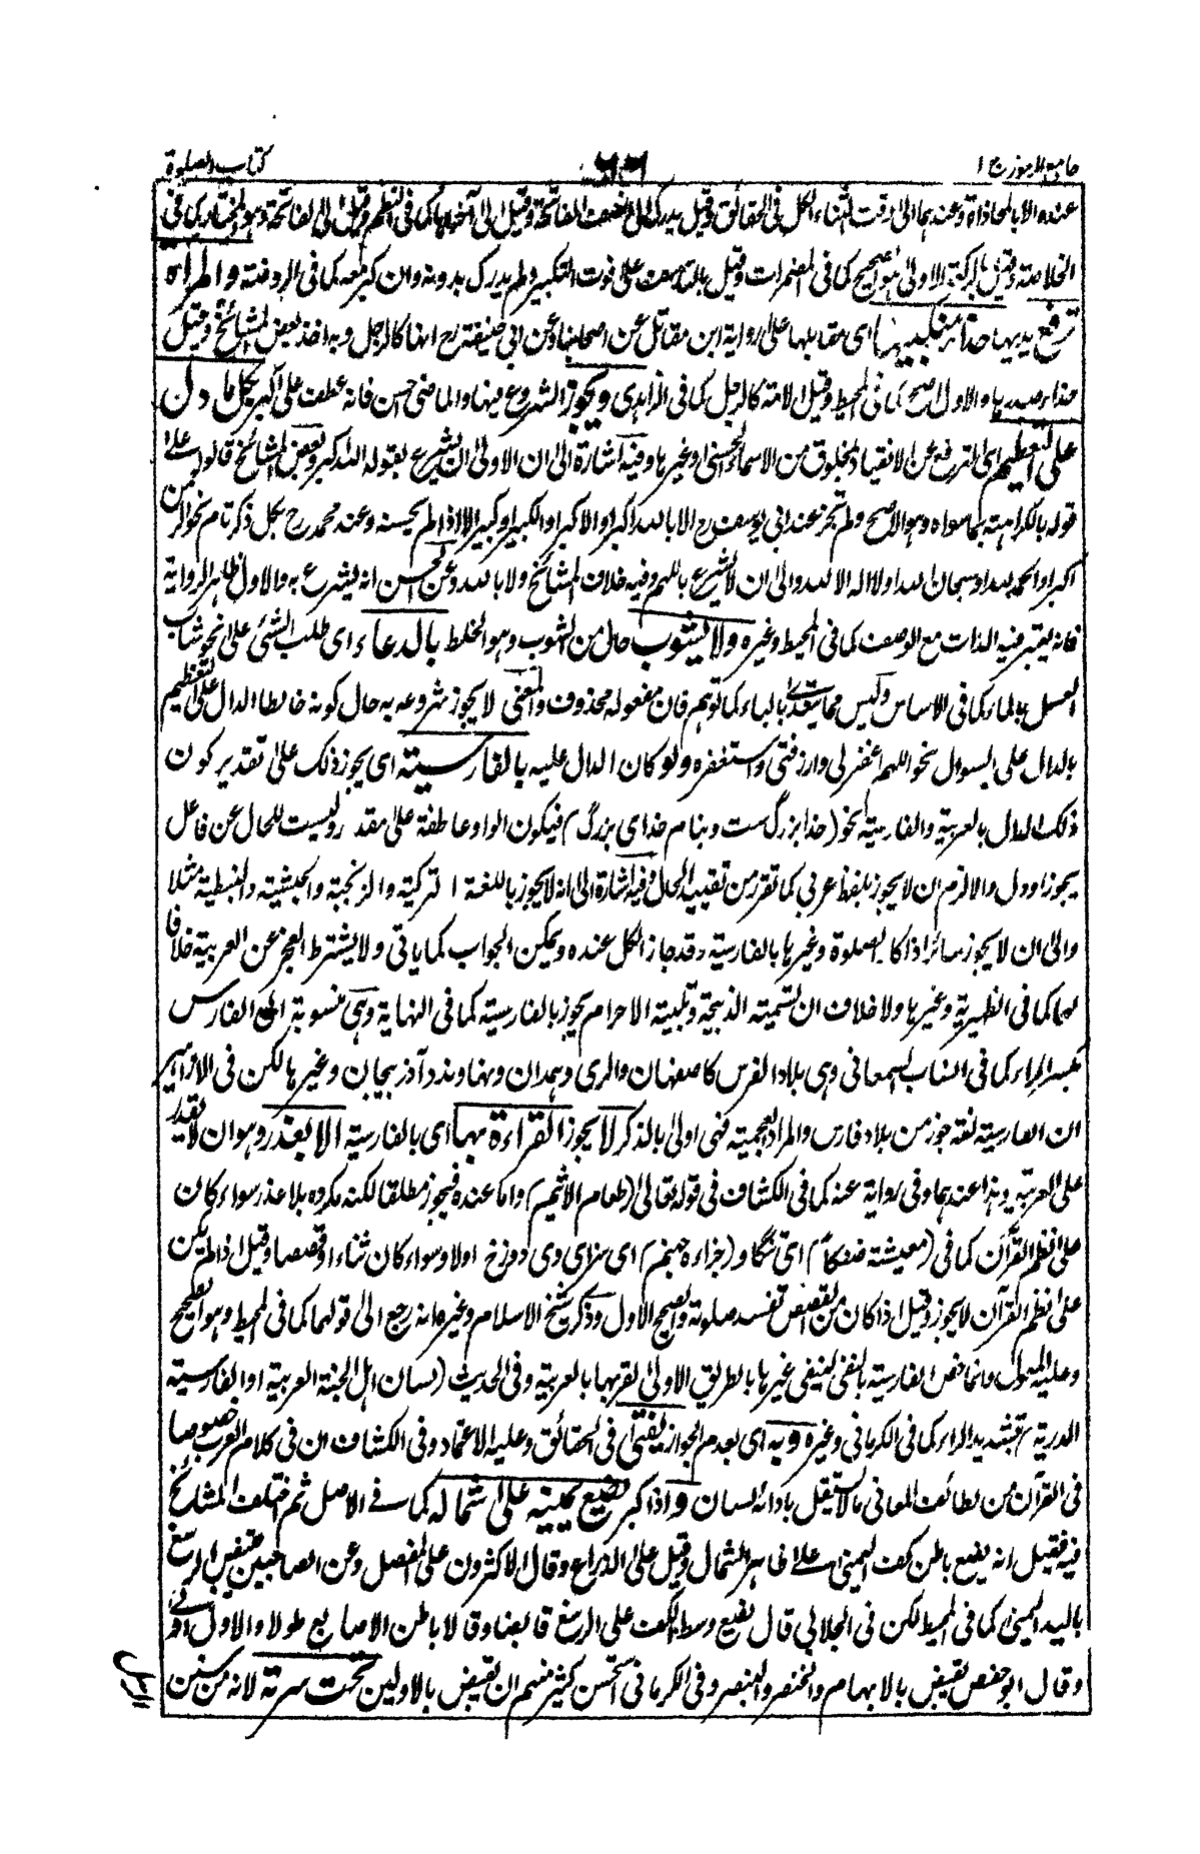 جامع الرموز ج ١
٦٦
كتاب الصلوة
عنده الا بالمحاذاة وعندهما الى وقت الثناء الكل فى الحقائق وقيل يدرك الى نصف الفاتحة وقيل الى آخرها كما فى النظم وقيل الى الفاتحة وهو المختار كما فى
الخلاصة وقيل بالركعة الاولى هو الصحيح كما فى المضمرات وقيل بالتاسف على فوت التكبير ولم يدرك بدونه وان كبر معه كما فى الروضة والمرأة
ترفع يديها حذاء منكبيها اى مقابلها على رواية ابن مقاتل عن اصحابنا وعن ابى حنيفة رح انها كالرجل وبه اخذ بعض المشائخ وقيل
حذاء صدرها والاول اصح كما فى المحيط وقيل الامة كالرجل كما فى الزاهدى ويجوز الشروع فيها والماضى احسن فانه عطف على كبر بكل ما دل
على التعظيم اى الترفع عن الانقياد للمخلوق من الاسماء الحسنى او غيرها وفيه اشارة الى ان الاولى ان يشرع بقوله الله اكبر وبعض المشائخ قالوا على
قوله بالكراهة بما سواه وهو الاصح ولم تجز عند ابى يوسف رح الا بالله اكبر او الاكبر او الكبير او كبير الا اذا لم يحسنه وعند محمد رح بكل ذكر تام نحو الرحمن
اكبر او الحمد لله او سبحان الله او لا اله الا الله والى ان لا يشرع باللهم وفيه خلاف المشائخ ولا بالله وعن الحسن انه يشرع به والاول ظاهر الرواية
فانه يعتبر فيه الذات مع الوصف كما فى المحيط وغيره ولا يشوب حال من الشوب وهو الخلط بالدعاء اى طلب الشئ على نحو شاب
العسل بالماء كما فى الاساس وليس مما يتعدى بالباء كما توهم فان مفعوله محذوف والمعنى لا يجوز شروعه به حال كونه خالطا الدال على التعظيم
بالدال على السوال نحو اللهم اغفر لى وارزقنى واستغفره ولو كان الدال عليه بالفارسية اى يجوز ذلك على تقدير كون
ذلك الدال بالعربية والفارسية نحو (خدا بزرگ ست وبنام خداى بزرگ) فيكون الواو عاطفة على مقدر وليست للحال عن فاعل
يجوز او دل والا لزم ان لا يجوز بلفظ عربى كما تقرر من تقييد الحال وفيه اشارة الى انه لا يجوز باللغة التركية والزنجية والحبشية والنبطية مثلا
والى ان لا يجوز سائر اذكار الصلوة وغيرها بالفارسية وقد جاز الكل عنده ويمكن الجواب كما ياتى ولا يشترط العجز عن العربية خلافا
لهما كما فى الظهيرية وغيرها ولا خلاف ان تسمية الذبيحة وتلبية الاحرام يجوز بالفارسية كما فى النهاية وهى منسوبة الى الفارس
بكسر الراء كما فى انساب السمعانى وهى بلاد الفرس كاصفهان والرى وهمدان ونهاوند وآذربيجان وغيرها لكن فى الازاهير
ان الفارسية لغة خوز من بلاد فارس والمراد العجمية فهى اولى بالذكر لا يجوز القراءة بها اى بالفارسية الا بعذر وهو ان لا يقدر
على العربية وهذا عندهما وفى رواية عنه كما فى الكشاف فى قوله تعالى (طعام الاثيم) واما عنده فيجوز مطلقا لكنه مكروه بلا عذر سواء كان
على نظم القرآن كما فى (معيشة ضنكا) اى تنگا و(جزاءه جهنم) اى سزاى وى دوزخ اولا وسواء كان ثناء او قصصا وقيل اذا لم يكن
على نظم القرآن لا يجوز وقيل اذا كان من القصص تفسد صلوته والصحيح الاول وذكر شيخ الاسلام وغيره انه رجع الى قولهما كما فى المحيط وهو الصحيح
وعليه المعول وانما خص الفارسية بالنفى لينفى غيرها بالطريق الاولى لقربها بالعربية وفى الحديث (لسان اهل الجنة العربية او الفارسية
الدرية) بتشديد الراء كما فى الكرمانى وغيره وبه اى بعدم الجواز يفتى فى الحقائق وعليه الاعتماد وفى الكشاف ان فى كلام العرب خصوصا
فى القرآن من لطائف المعانى ما لا يستقل بادائه لسان واذا كبر يضع يمينه على شماله كما فى الاصل ثم اختلف المشائخ
فيه فقيل انه يضع باطن كف اليمنى على ظاهر الشمال وقيل على الذراع وقال الاكثرون على المفصل وعن الصاحبين يقبض الرسغ
باليد اليمنى كما فى المحيط لكن فى الجلابى قال يضع وسط الكف على الرسغ قابضا وقالا باطن الاصابع طولا والاول اولى
وقال ابو حفص يقبض بالابهام والخنصر والبنصر وفى الكرمانى استحسن كثير منهم ان يقبض بالاولين تحت سرته لانه من سنن